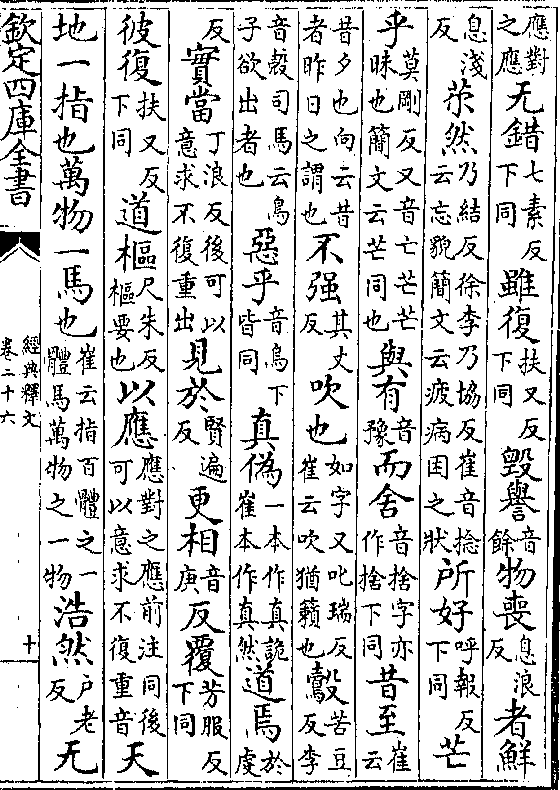 應對之應无錯七素反下同雖復扶又反下同毀譽音餘物喪息浪反者鮮
息淺反苶然乃結反徐李乃協反崔音捻云忘貌簡文云疲病困之狀所好呼報反下同芒
乎莫剛反又音亡芒芒昧也簡文云芒同也與有音豫而舍音捨字亦作捨下同昔至崔云
昔夕也向云昔者昨日之謂也不强其丈反吹也如字又叱瑞反崔云吹猶籟也鷇苦豆反李
音彀司馬云鳥子欲出者也惡乎音烏下皆同真偽一本作真詭崔本作真然道焉於虔
反實當丁浪反後可以意求不復重出見於賢遍反更相音庚反覆芳服反下同
彼復扶又反下同道樞尺朱反樞要也以應應對之應前注同後可以意求不復重音天
地一指也萬物一馬也崔云指百體之一體馬萬物之一物浩然户老反无
欽定四庫全書
經典釋文
卷二十六
十